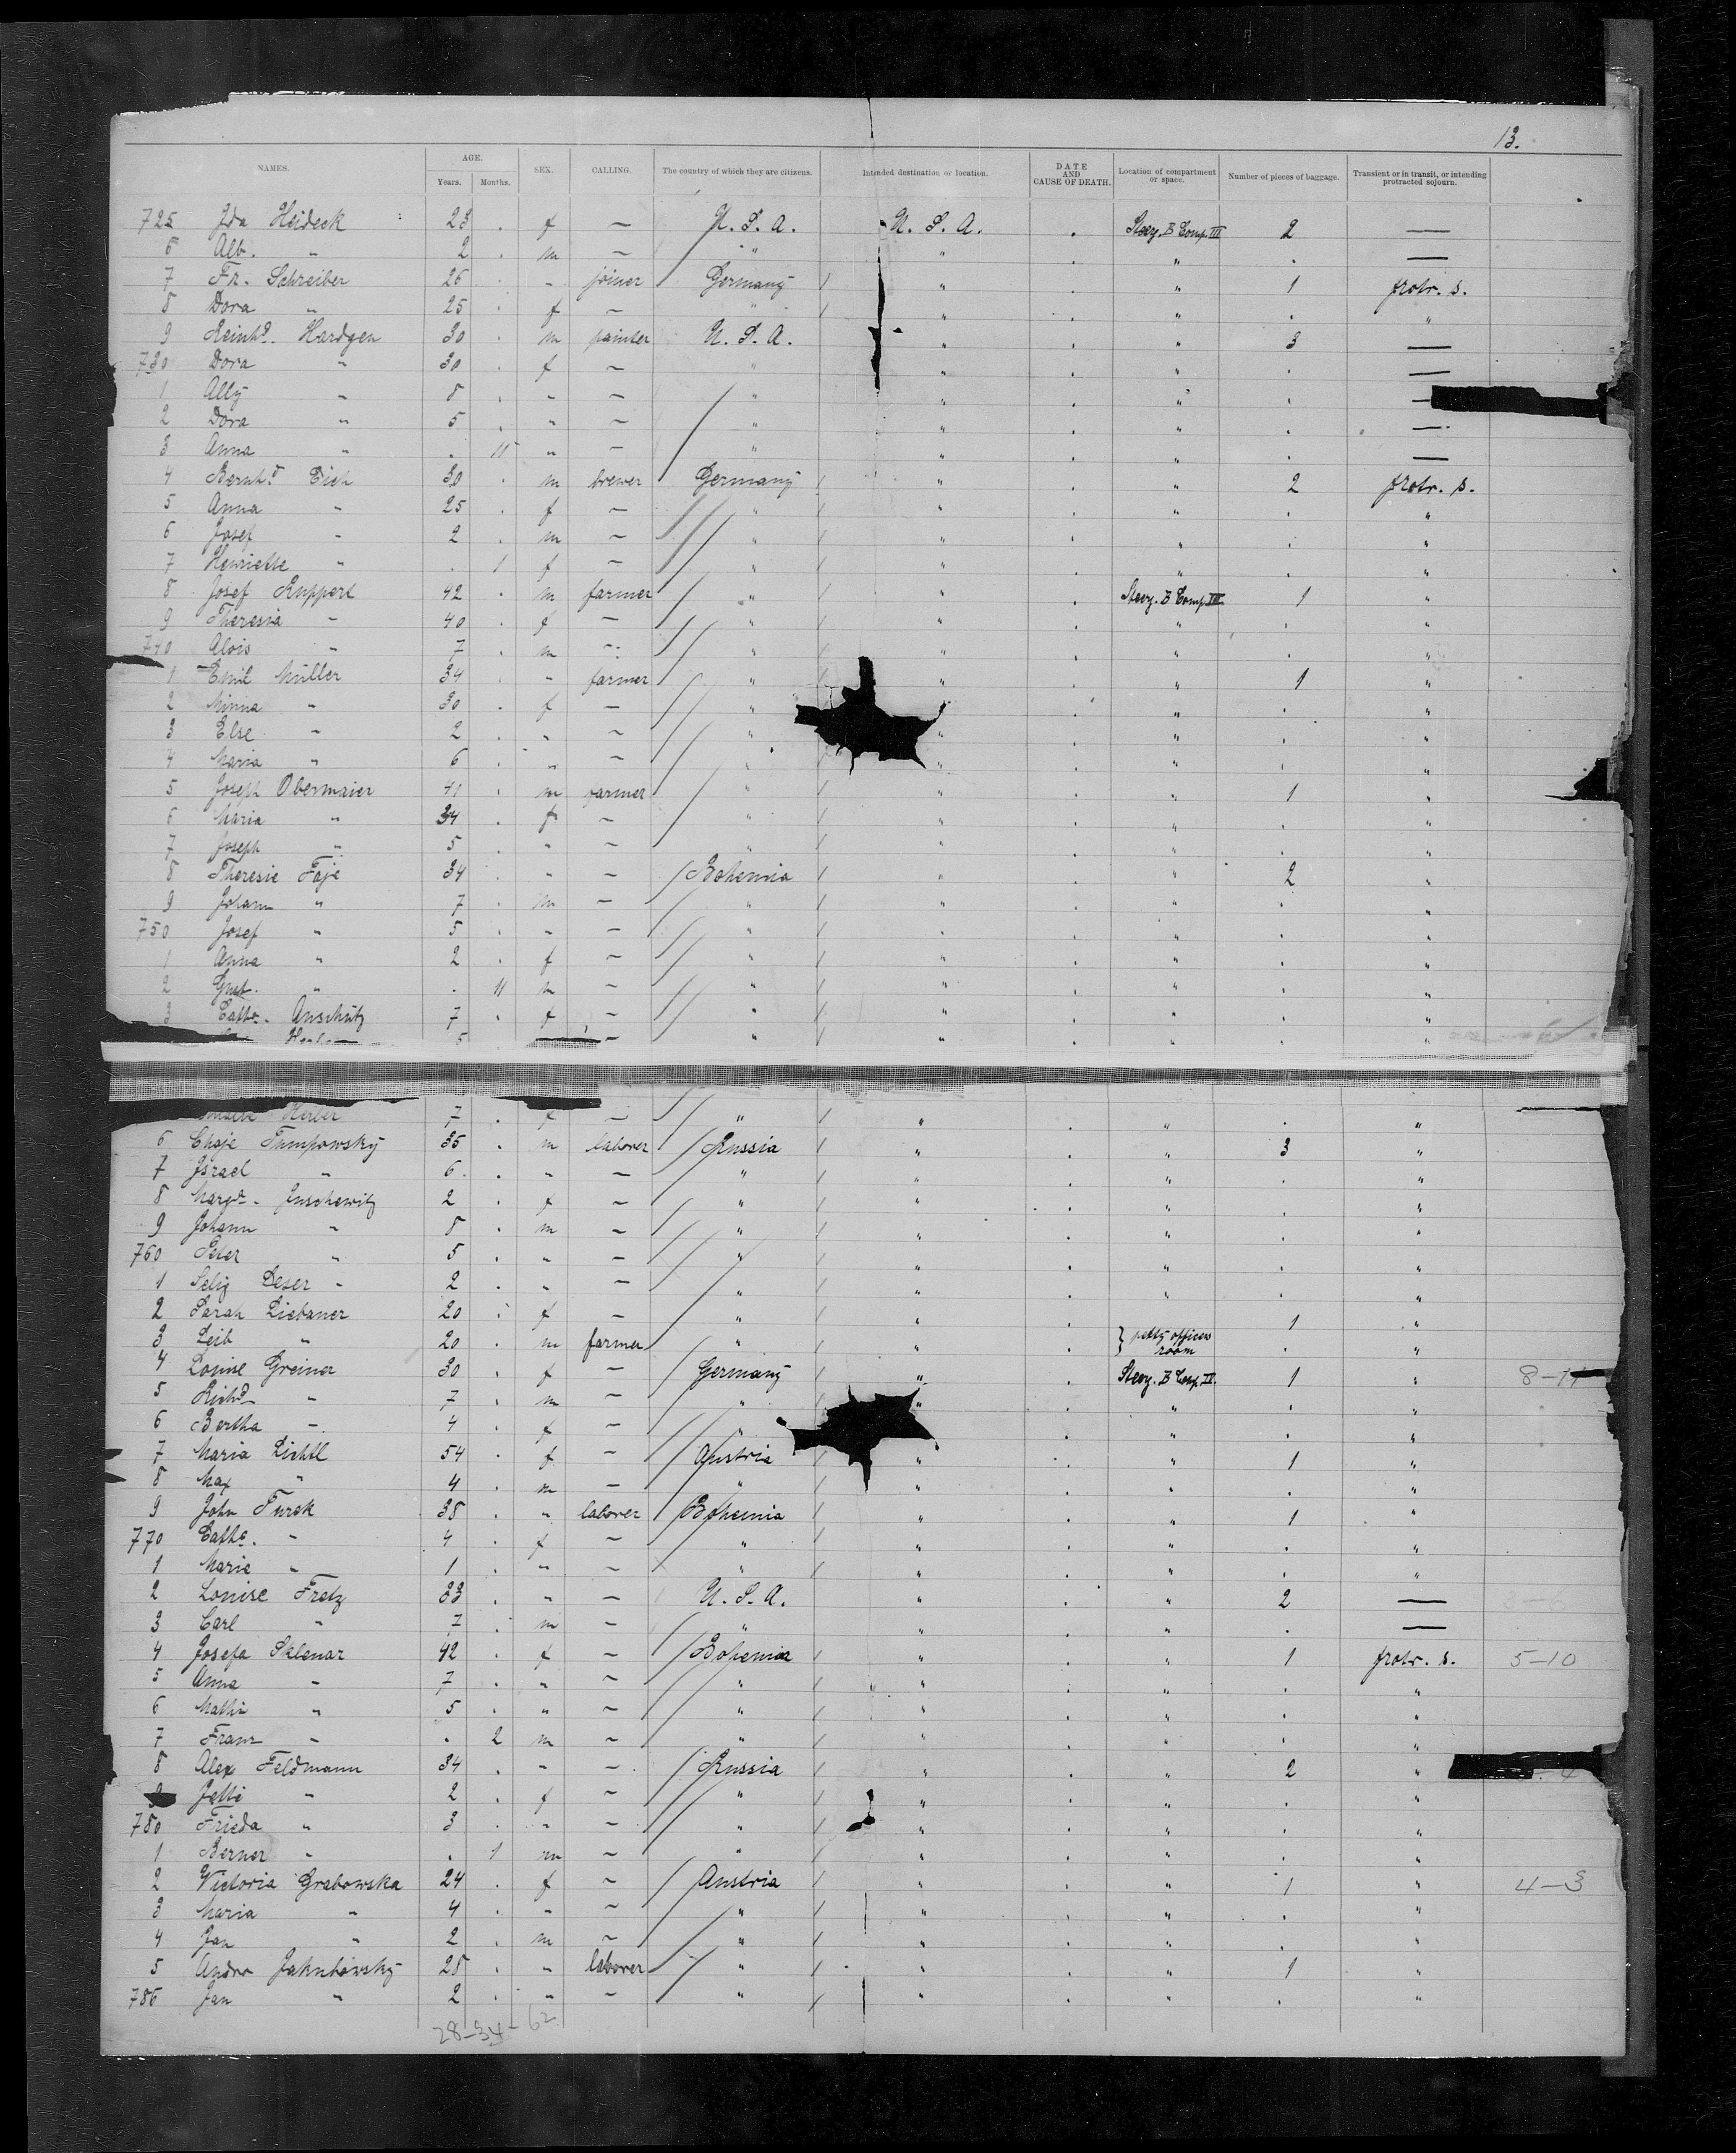 13.
NAMES. AGE. Years. Months. SEX. CALLING. The country of which they are citizens. Intended destination or location. DATE AND CAUSE OF DEATH. Location of compartment or space. Number of pieces of baggage. Transient or in transit, or intending protracted sojourn.
725 Ida Heideck 23 . f — U. S. A. U. S. A. . Steeg. B Comp. III 2 —
6 Alb. " 2 . m — " " . " . —
7 Fr. Schreiber 26 . " joiner Germany " . " 1 protr. s.
8 Dora " 25 . f — " " . " . "
9 Reinhd. Hardgen 30 . m painter U. S. A. " . " 3 —
730 Dora " 30 . f — " " . " . —
1 Ally " 8 . " — " " . " . —
2 Dora " 5 . " — " " . " . —
3 Anna " . 11 " — " " . " . —
4 Bernhd. Eich 30 . m brewer Germany " . " 2 protr. s.
5 Anna " 25 . f — " " . " . "
6 Josef " 2 . m — " " . " . "
7 Henriette " . 1 f — " " . " . "
8 Josef Ruppert 42 . m farmer " " . Steeg. B Comp. III 1 "
9 Theresia " 40 . f — " " . " . "
740 Alois " 7 . m — " " . " . "
1 Emil Müller 34 . " farmer " " . " 1 "
2 Minna " 30 . f — " " . " . "
3 Else " 2 . " — " " . " . "
4 Maria " 6 . " — " " . " . "
5 Joseph Obermaier 41 . m farmer " " . " 1 "
6 Maria " 34 . f — " " . " . "
7 Joseph " 5 . " — " " . " . "
8 Theresie Faje 34 . " — Bohemia " . " 2 "
9 Johann " 7 . m — " " . " . "
750 Josef " 5 . " — " " . " . "
1 Anna " 2 . f — " " . " . "
2 Gust. " . 11 m — " " . " . "
3 Cathe. Anschütz 7 . f — " " . " . "
5 . — " " . " . "
Herber 7 . f — " " . " . "
6 Chaje Tumpowsky 35 . m laborer Russia " . " 3 "
7 Israel " 6 . " — " " . " . "
8 Margr. Juschewitz 2 . f — " " . " . "
9 Johann " 8 . m — " " . " . "
760 Peter " 5 . " — " " . " . "
1 Selig Leser " 2 . " — " " . " . "
2 Sarah Liebauer 20 . f — " " . } petty officers room 1 "
3 Leib " 20 . m farmer " " . . "
4 Louise Greiner 30 . f — Germany " . Steeg. B Comp. II. 1 " 8-11
5 Richd. " 7 . m — " " . " . "
6 Bertha " 4 . f — " . " . "
7 Maria Lichtl 54 . f — Austria " . " 1 "
8 Max " 4 . m — " " . " . "
9 John Turek 38 . " laborer Bohemia " . " 1 "
770 Cathe. " 4 . f — " " . " . "
1 Marie " 1 . " — " " . " . "
2 Louise Fretz 33 . " — U. S. A. " . " 2 —
3 Carl " 7 . m — " " . " . —
4 Josefa Sklenar 42 . f — Bohemia " . " 1 protr. s. 5-10
5 Anna " 7 . " — " " . " . "
6 Mathi " 5 . " — " " . " . "
7 Franz " . 2 m — " " . " . "
8 Alex Feldmann 34 . " — Russia " . " 2 "
Jetti " 2 . f — " " . " . "
780 Frieda " 3 . " — " " . " . "
1 Berner " . 1 m — " " . " . "
2 Victoria Grabowska 24 . f — Austria " . " 1 " 4-3
3 Maria " 4 . " — " " . " . "
4 Jan " 2 . m — " " . " . "
5 Andr. Jakubowsky 28 . " laborer " " . " 1 "
786 Jan " 2 . " — " " . " . "
28-34-62